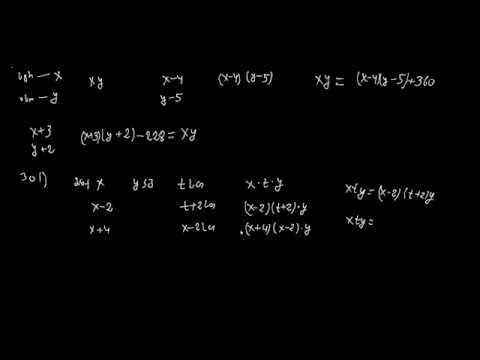 x xy x-4 (x-4)(y-5) xy = (x-4)(y-5)+360
y y-5
x+3 (x+3)(y+2)-228 = xy
y+2
301) x t x·t·y xty = (x-2)(t+2)y
x-2 t+2 (x-2)(t+2)·y
x+4 x-2 (x+4)(x-2)·y xty =